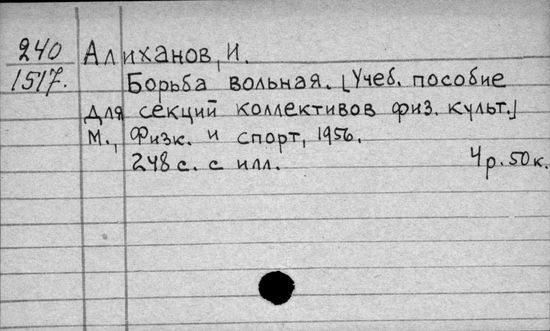 240 Алиханов, И.
1517. Борьба вольная. [Учеб. пособие
для секций коллективов физ. культ.]
М., Физк. и спорт, 1956.
248 с. с илл. 4 р. 50 к.